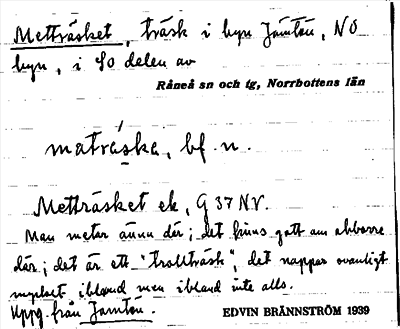 Metträsket, träsk i byn Jämtön, NO
byn, i SO delen av
Råneå sn och tg, Norrbottens län
maträske, bf. n.
Metträsket ek, G 37 NV.
Man metar ännu där; det finns gott om abborre
där; det är ett "trollträsk", det nappar ovanligt
mycket ibland men ibland inte alls.
Uppg. från Jämtön.
EDVIN BRÄNNSTRÖM 1939